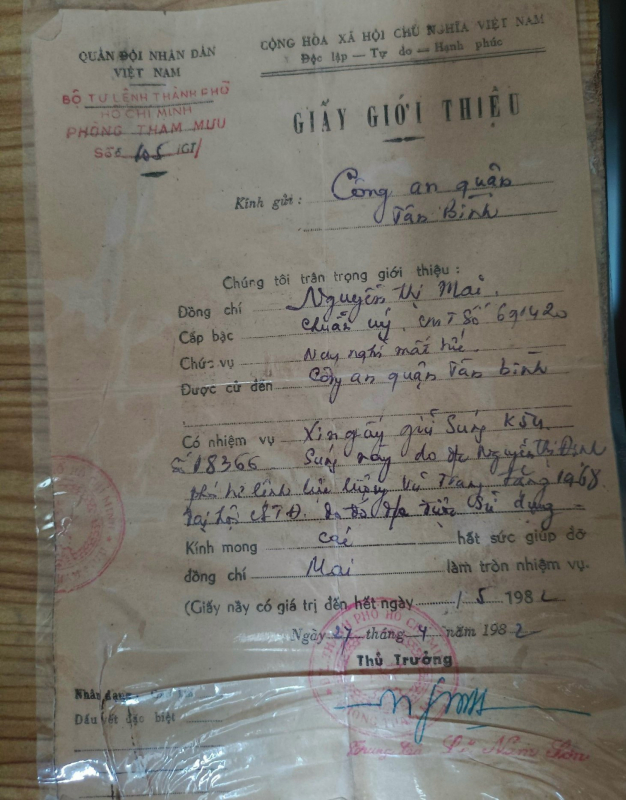 QUÂN ĐỘI NHÂN DÂN
VIỆT NAM
BỘ TƯ LỆNH THÀNH PHỐ
HỒ CHÍ MINH
PHÒNG THAM MƯU
Số 105 /GT/
CỘNG HÒA XÃ HỘI CHỦ NGHĨA VIỆT NAM
Độc lập — Tự do — Hạnh phúc
GIẤY GIỚI THIỆU
Kính gửi : Công an quận
Tân Bình
Chúng tôi trân trọng giới thiệu :
Đồng chí Nguyễn Thị Mai
Cấp bậc chuẩn uý, CMT Số 691420
Chức vụ Nay nghỉ mất
Được cử đến Công an quận Tân Bình
Có nhiệm vụ Xin giấy giữ Súng K54
Số 18366 Súng này do đ/c Nguyễn Thị Định
phó tư lệnh lực lượng Vũ Trang tặng 1968
tại hội sử dụng
Kính mong các hết sức giúp đỡ
đồng chí Mai làm tròn nhiệm vụ.
(Giấy này có giá trị đến hết ngày 1 5 1982
Ngày 27 tháng 4 năm 1982
Thủ Trưởng
Nhân dạng
Dấu vết đặc biệt
Năm